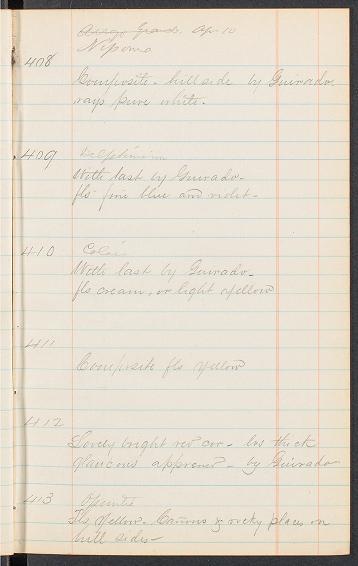 Arroyo Grande. Ap. 10
Nipomo
408
Composite - hill side by Guirado
rays pure white.
409
Delphinium
With last by Guirado -
fls fine blue and violet -
410
With last by Guirado -
fls cream, or light yellow
411
Composite fls yellow
412
Lovely bright red cor - lvs thick
glaucous appressed - by Guirado
413
Opuntia
Fls yellow. Cañons & rocky places on
hill sides -